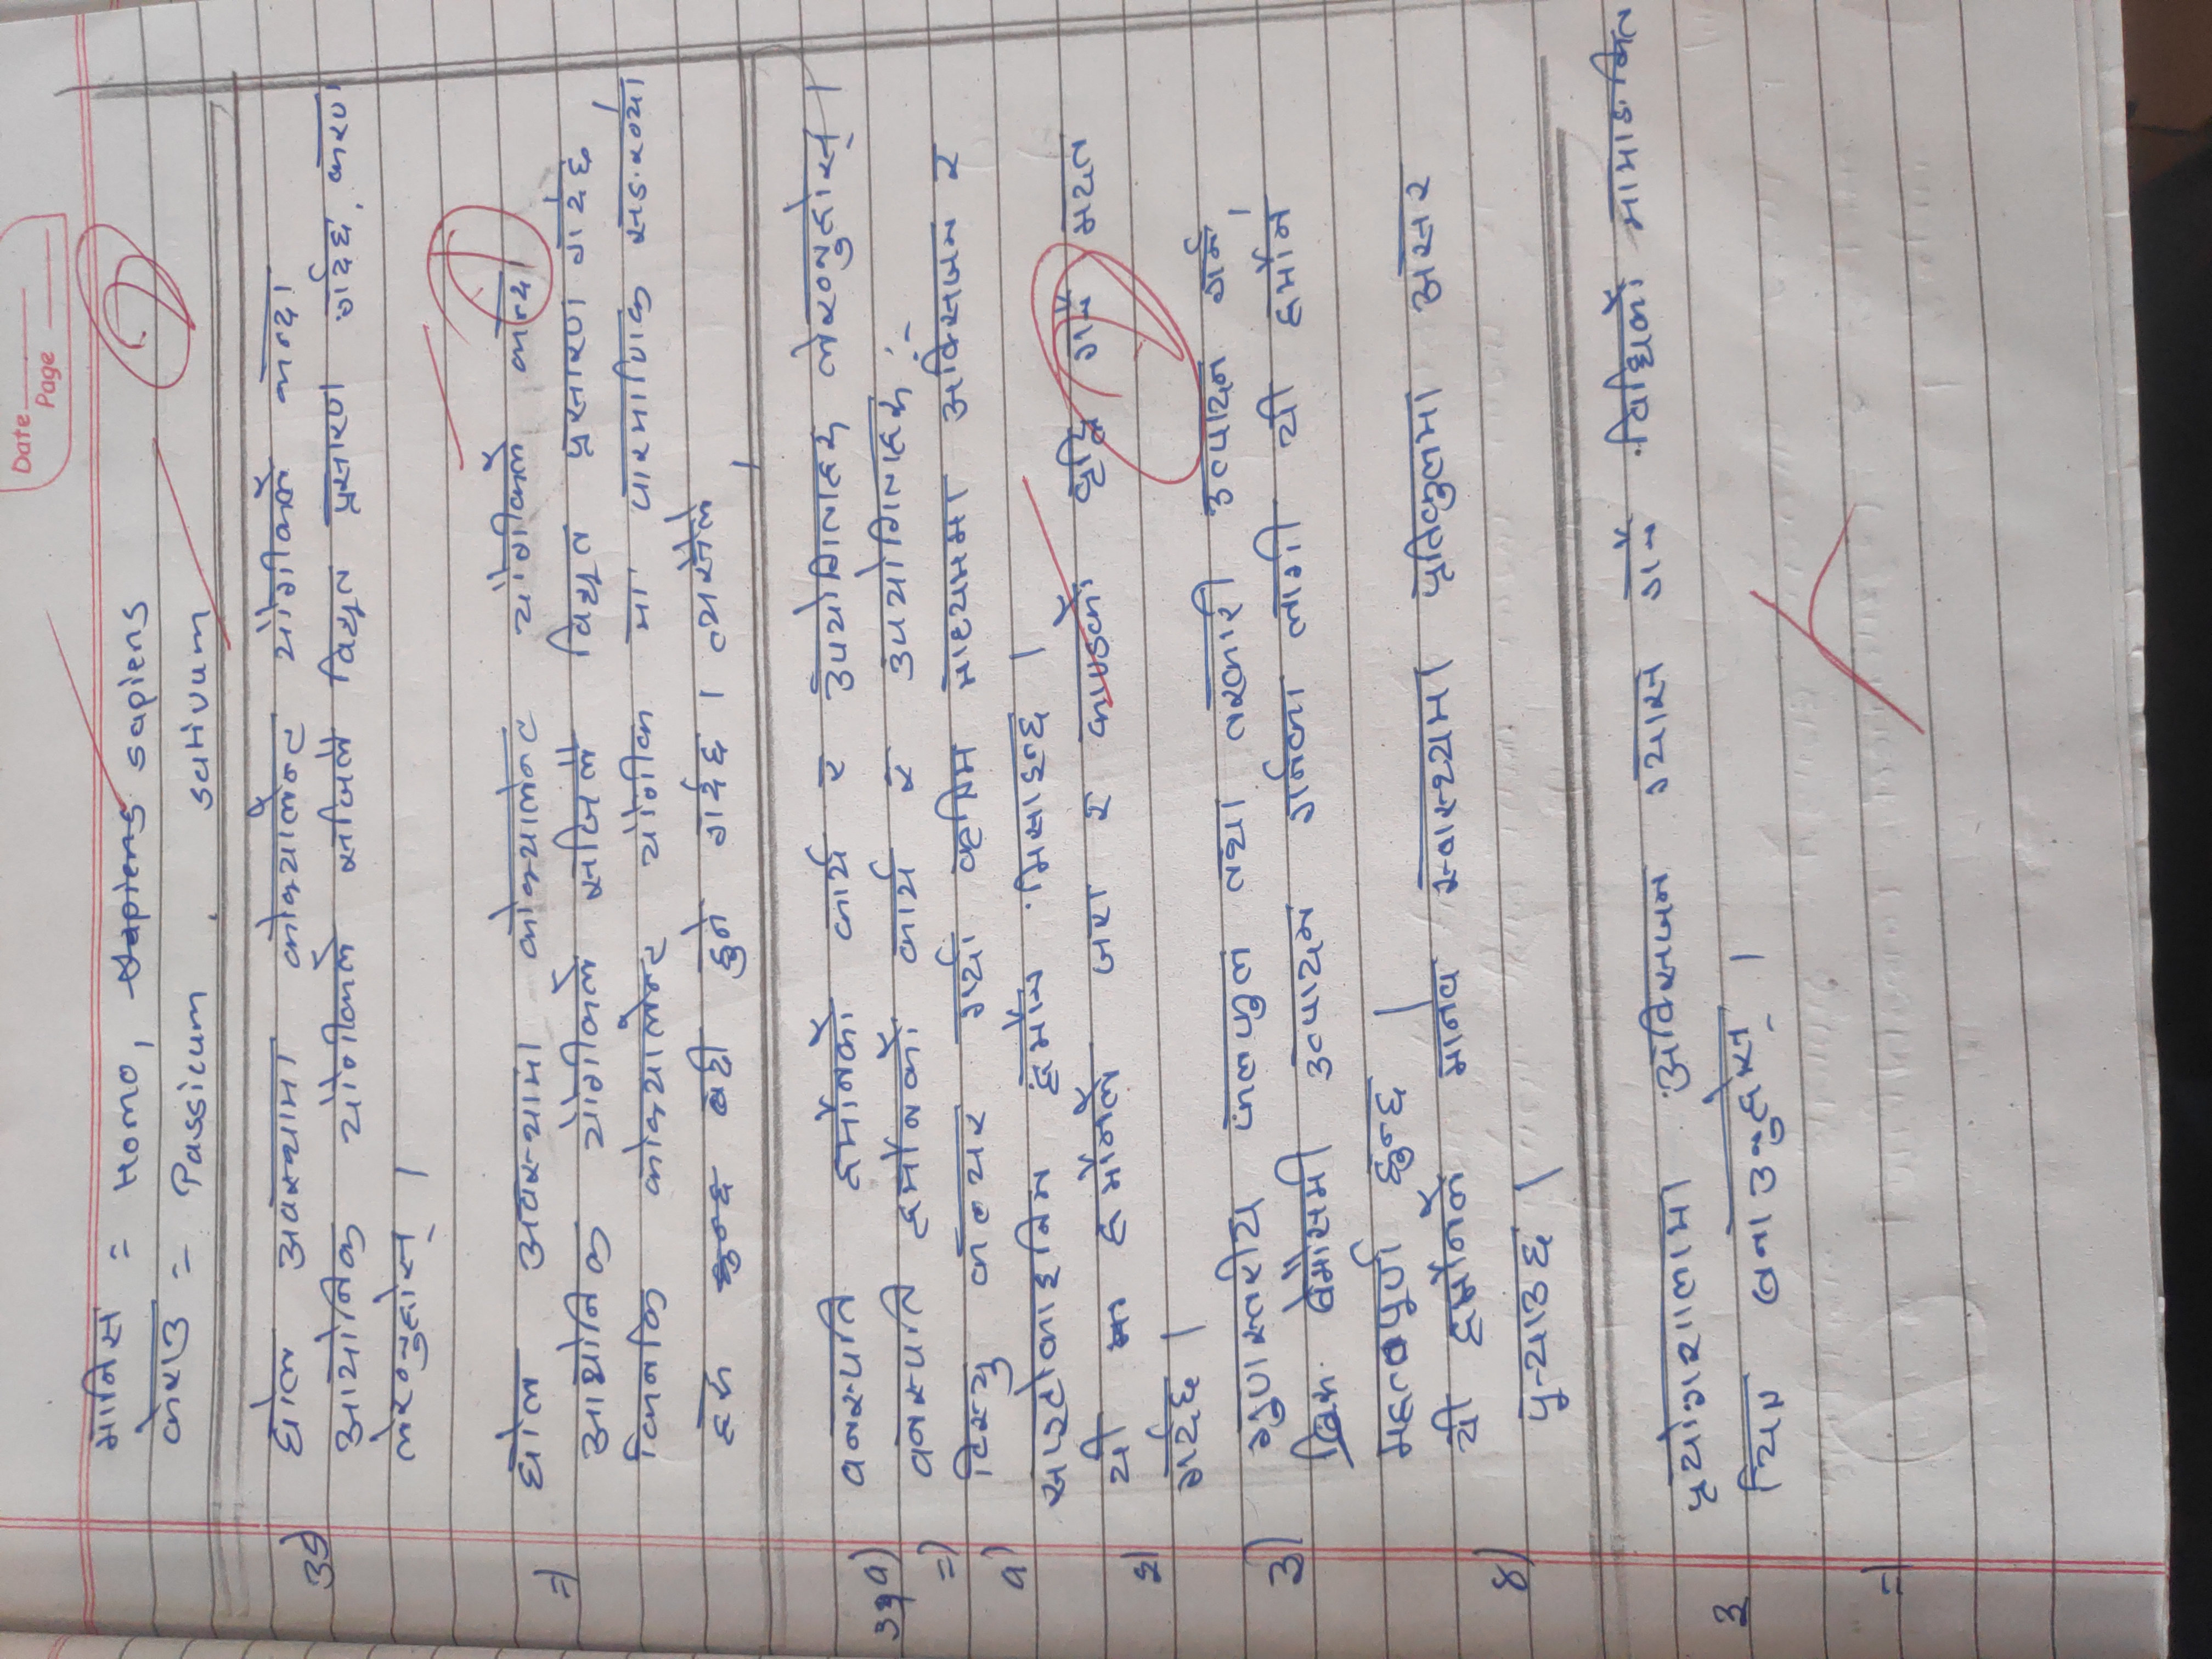 Date
Page
मानिस = Homo, Sapiens sapiens
केराउ = Passicum , sativum
घोल अवस्थामा कोभ्यालेन्ट यौगीकले भन्दा
आयोनिक यौगीकले सजिलै विद्युत प्रसारण गर्दछ, करण
लेख्नुहोस् ।
=) घोल अवस्थामा कोभ्यालेन्ट यौगीकले भन्दा
आयोनिक यौगीकले सजिलै विद्युत प्रसारण गर्दछ,
किनकि कोभ्यालेन्ट यौगीक मा पारमाणिक सङख्या
हरु हुन्छ बढी हुने गर्दछ । त्यसैले
।
वनस्पति हर्मोनको कार्य र उपयोगिताहरु लेख्नुहोस् ।
=) वनस्पति हर्मोनको कार्य र उपयोगिताहरु :-
१) टिस्यु कल्चर गर्दा कृत्रिम माध्यममा अक्सिजन र
साइटोकाइनिन हर्मोन मिसाइन्छ ।
२) यी हर्मोनले जरा र काण्डको वृद्धि गर्न मदत
गर्दछ ।
३) गुणस्तरीय फलफुल तथा तरकारी उत्पादन गर्न,
बेमौसमी उत्पादन गर्नका लागी यी हर्मोन
महत्वपूर्ण हुन्छ ।
४) यी हर्मोनले मानव स्वास्थ्यमा प्रतिकुलमा असर
पुर्‍याउछ ।
३ प्रयोगशालामा अक्सिजन ग्यास गर्ने विधिको नामाङकित
चित्र बनाउनुहोस् ।
=)